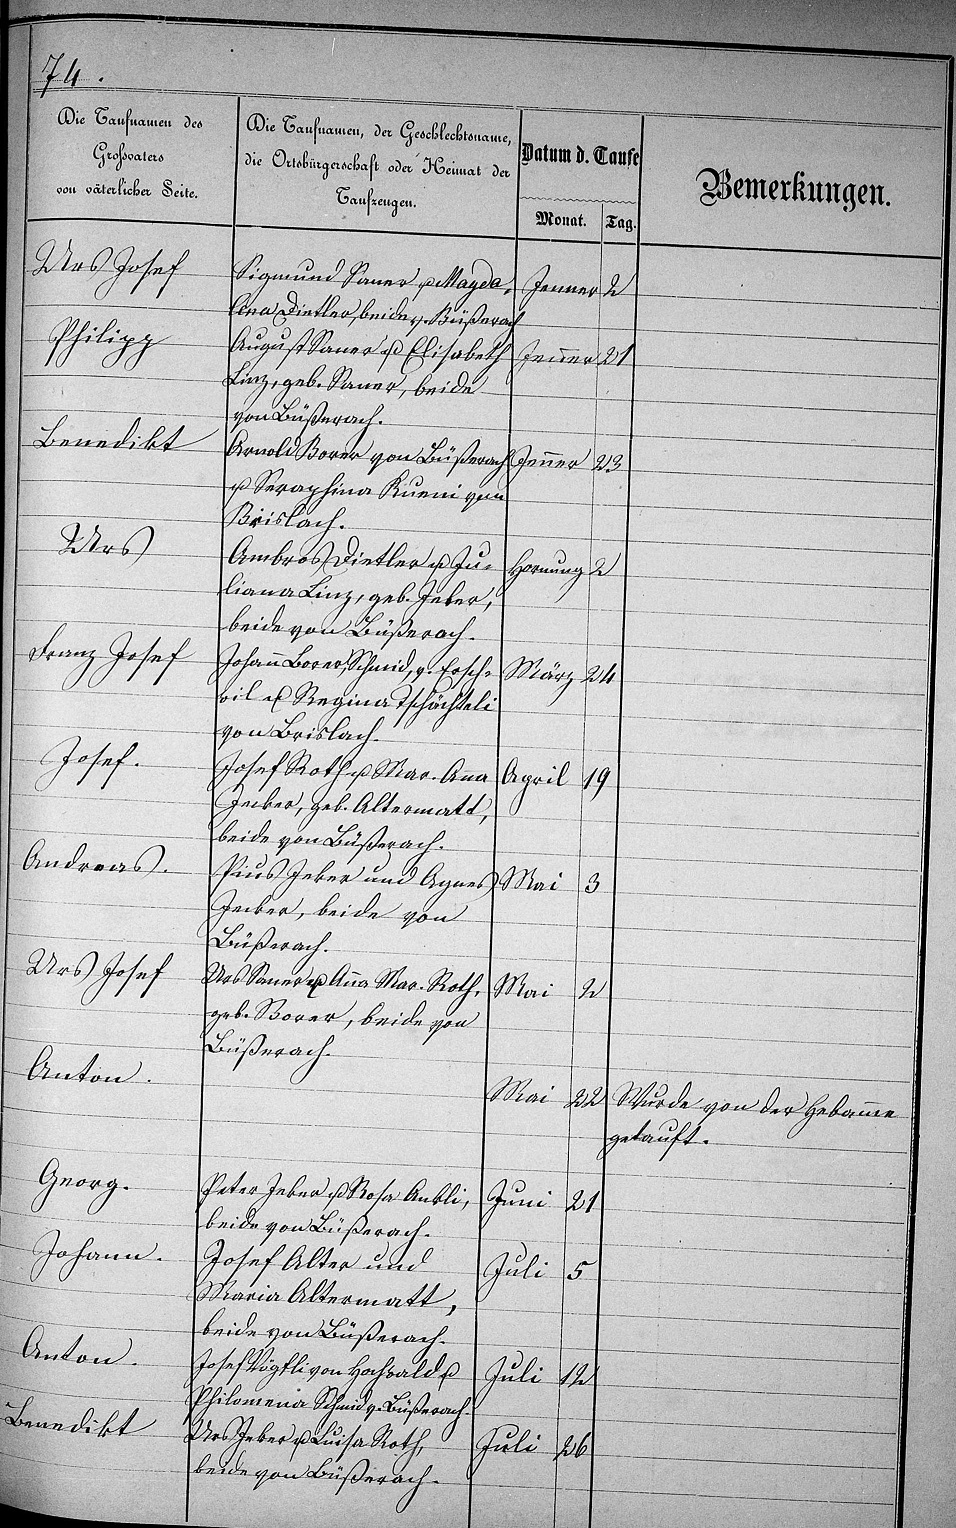 74.
Die Taufnamen des
Großvaters
von väterlicher Seite.
Die Taufnamen, der Geschlechtsname,
die Ortsbürgerschaft oder Heimat der
Taufzeugen.
Datum d. Taufe
Monat. Tag.
Bemerkungen.
Urs Josef
Sigmund Saner u Magda, Jenner 2
lena Dietler, beide v. Büßerach
Philipp
August Saner u Elisabeth Jenner 21
Linz, geb. Saner, beide
von Büßerach.
Benedikt
Arnold Borer von Büßerach Jenner 23
u Seraphina Kueni von
Brislach.
Urs
Ambros Dietler u Ju- Hornung 2
liana Linz, geb. Jeker,
beide von Büßerach.
Franz Josef
Johann Borer, Schmid, v. Ersch- März 24
wil u Regina Tschächteli
von Brislach.
Josef.
Josef Roth u Mar. Anna April 19
Jecker, geb. Altermatt,
beide von Büßerach.
Andreas.
Pius Jeker und Agnes Mai 3
Jecker, beide von
Büßerach.
Urs Josef
Urs Saner u Anna Mar. Roth, Mai 2
geb. Borer, beide von
Büßerach.
Anton.
Mai 22 Wurde von der Hebamme
getauft.
Georg.
Peter Jeker u Rosa Ankli, Juni 21
beide von Büßerach.
Johann.
Josef Alter und Juli 5
Maria Altermatt,
beide von Büßerach.
Anton.
Josef Vögtli von Hochwald u Juli 12
Philomena Schmid v. Büßerach.
Benedikt
Urs Jeker u Luisa Roth, Juli 26
beide von Büßerach.